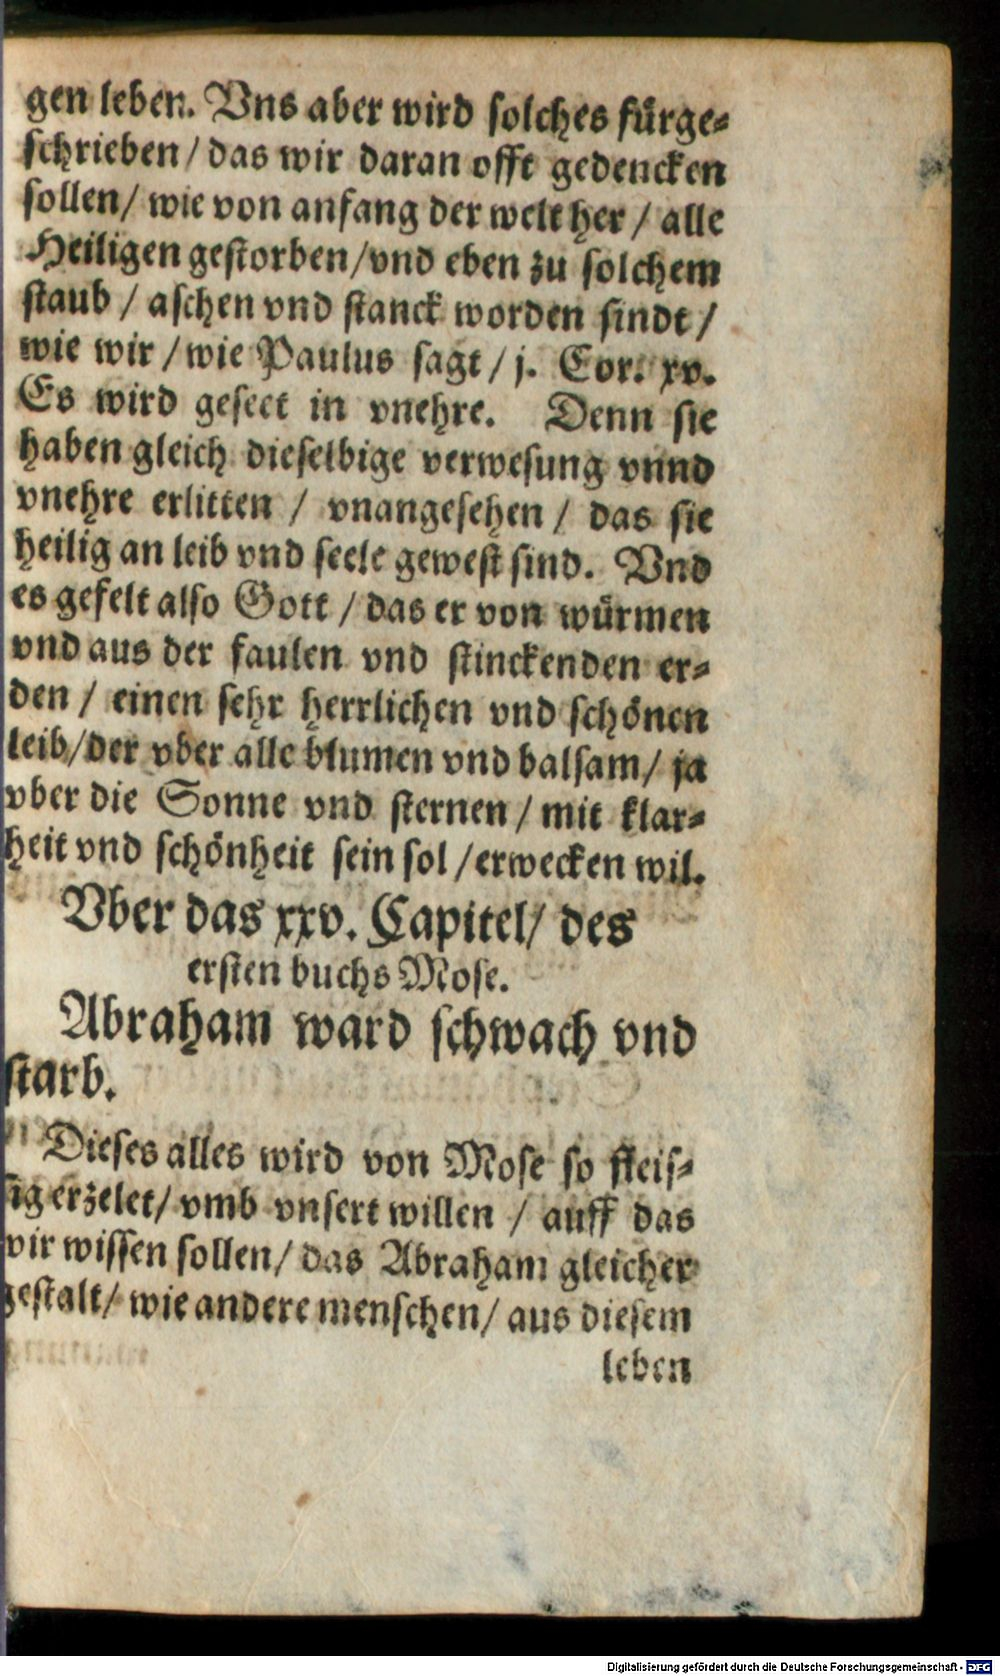 gen leben. Vns aber wird solches fürge-
schrieben / das wir daran offt gedencken
sollen / wie von anfang der welt her / alle
Heiligen gestorben / vnd eben zu solchem
staub / aschen vnd stanck worden sindt /
wie wir / wie Paulus sagt / j. Cor. xv.
Es wird geseet in vnehre. Denn sie
haben gleich dieselbige verwesung vnnd
vnehre erlitten / vnangesehen / das sie
heilig an leib vnd seele gewest sind. Vnd
es gefelt also Gott / das er von würmen
vnd aus der faulen vnd stinckenden er-
den / einen sehr herrlichen vnd schönen
leib / der vber alle blumen vnd balsam / ja
vber die Sonne vnd sternen / mit klar-
heit vnd schönheit sein sol / erwecken wil.
Vber das xxv. Capitel / des
ersten buchs Mose.
Abraham ward schwach vnd
starb.
Dieses alles wird von Mose so fleis-
sig erzelet / vmb vnsert willen / auff das
wir wissen sollen / das Abraham gleicher
gestalt / wie andere menschen / aus diesem
leben
Digitalisierung gefördert durch die Deutsche Forschungsgemeinschaft - DFG